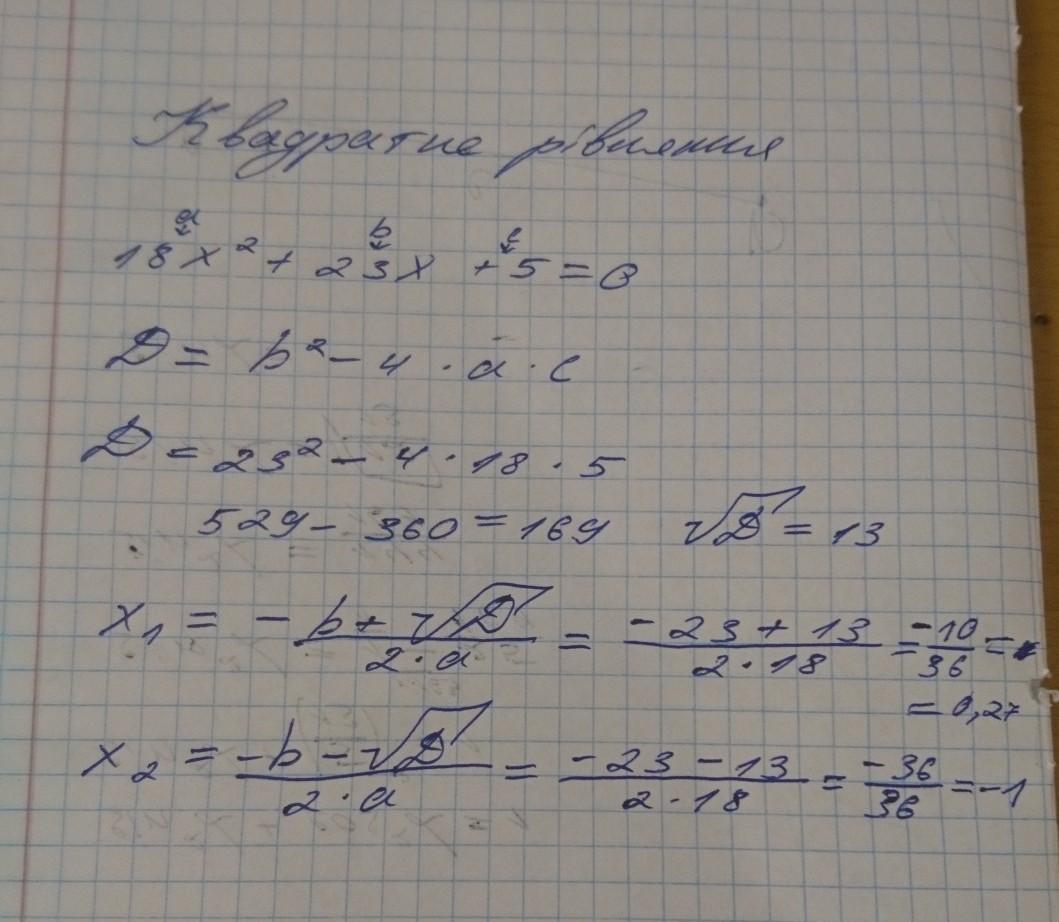 Квадратне рівняння
a b c
18x² + 23x + 5 = 0
D = b² - 4 · a · c
D = 23² - 4 · 18 · 5
529 - 360 = 169 √D = 13
x₁ = -b + √D / 2·a = -23 + 13 / 2·18 = -10/36 =
= 0,27
x₂ = -b - √D / 2·a = -23 - 13 / 2·18 = -36/36 = -1